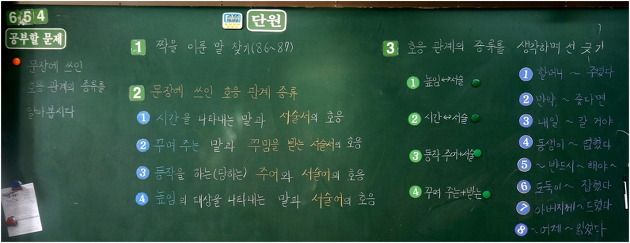 654
단원
공부할 문제
문장에 쓰인
호응 관계의 종류를
알아봅시다
1 짝을 이룬 말 찾기(86~87)
2 문장에 쓰인 호응 관계 종류
1 시간을 나타내는 말과 서술어의 호응
2 꾸며 주는 말과 꾸밈을 받는 서술어의 호응
3 동작을 하는(당하는) 주어와 서술어의 호응
4 높임의 대상을 나타내는 말과 서술어의 호응
3 호응 관계의 종류를 생각하며 선 긋기
1 높임↔서술
2 시간↔서술
3 동작 주어+서술
4 꾸며 주는+받는
1 할머니 ~ 주셨다
2 만약 ~ 준다면
3 내일 ~ 갈 거야
4 동생이 ~ 업혔다
5 ~ 반드시 ~ 해야 ~
6 도둑이 ~ 잡혔다
7 아버지께 ~ 드렸다
8 ~ 어제 ~ 읽었다